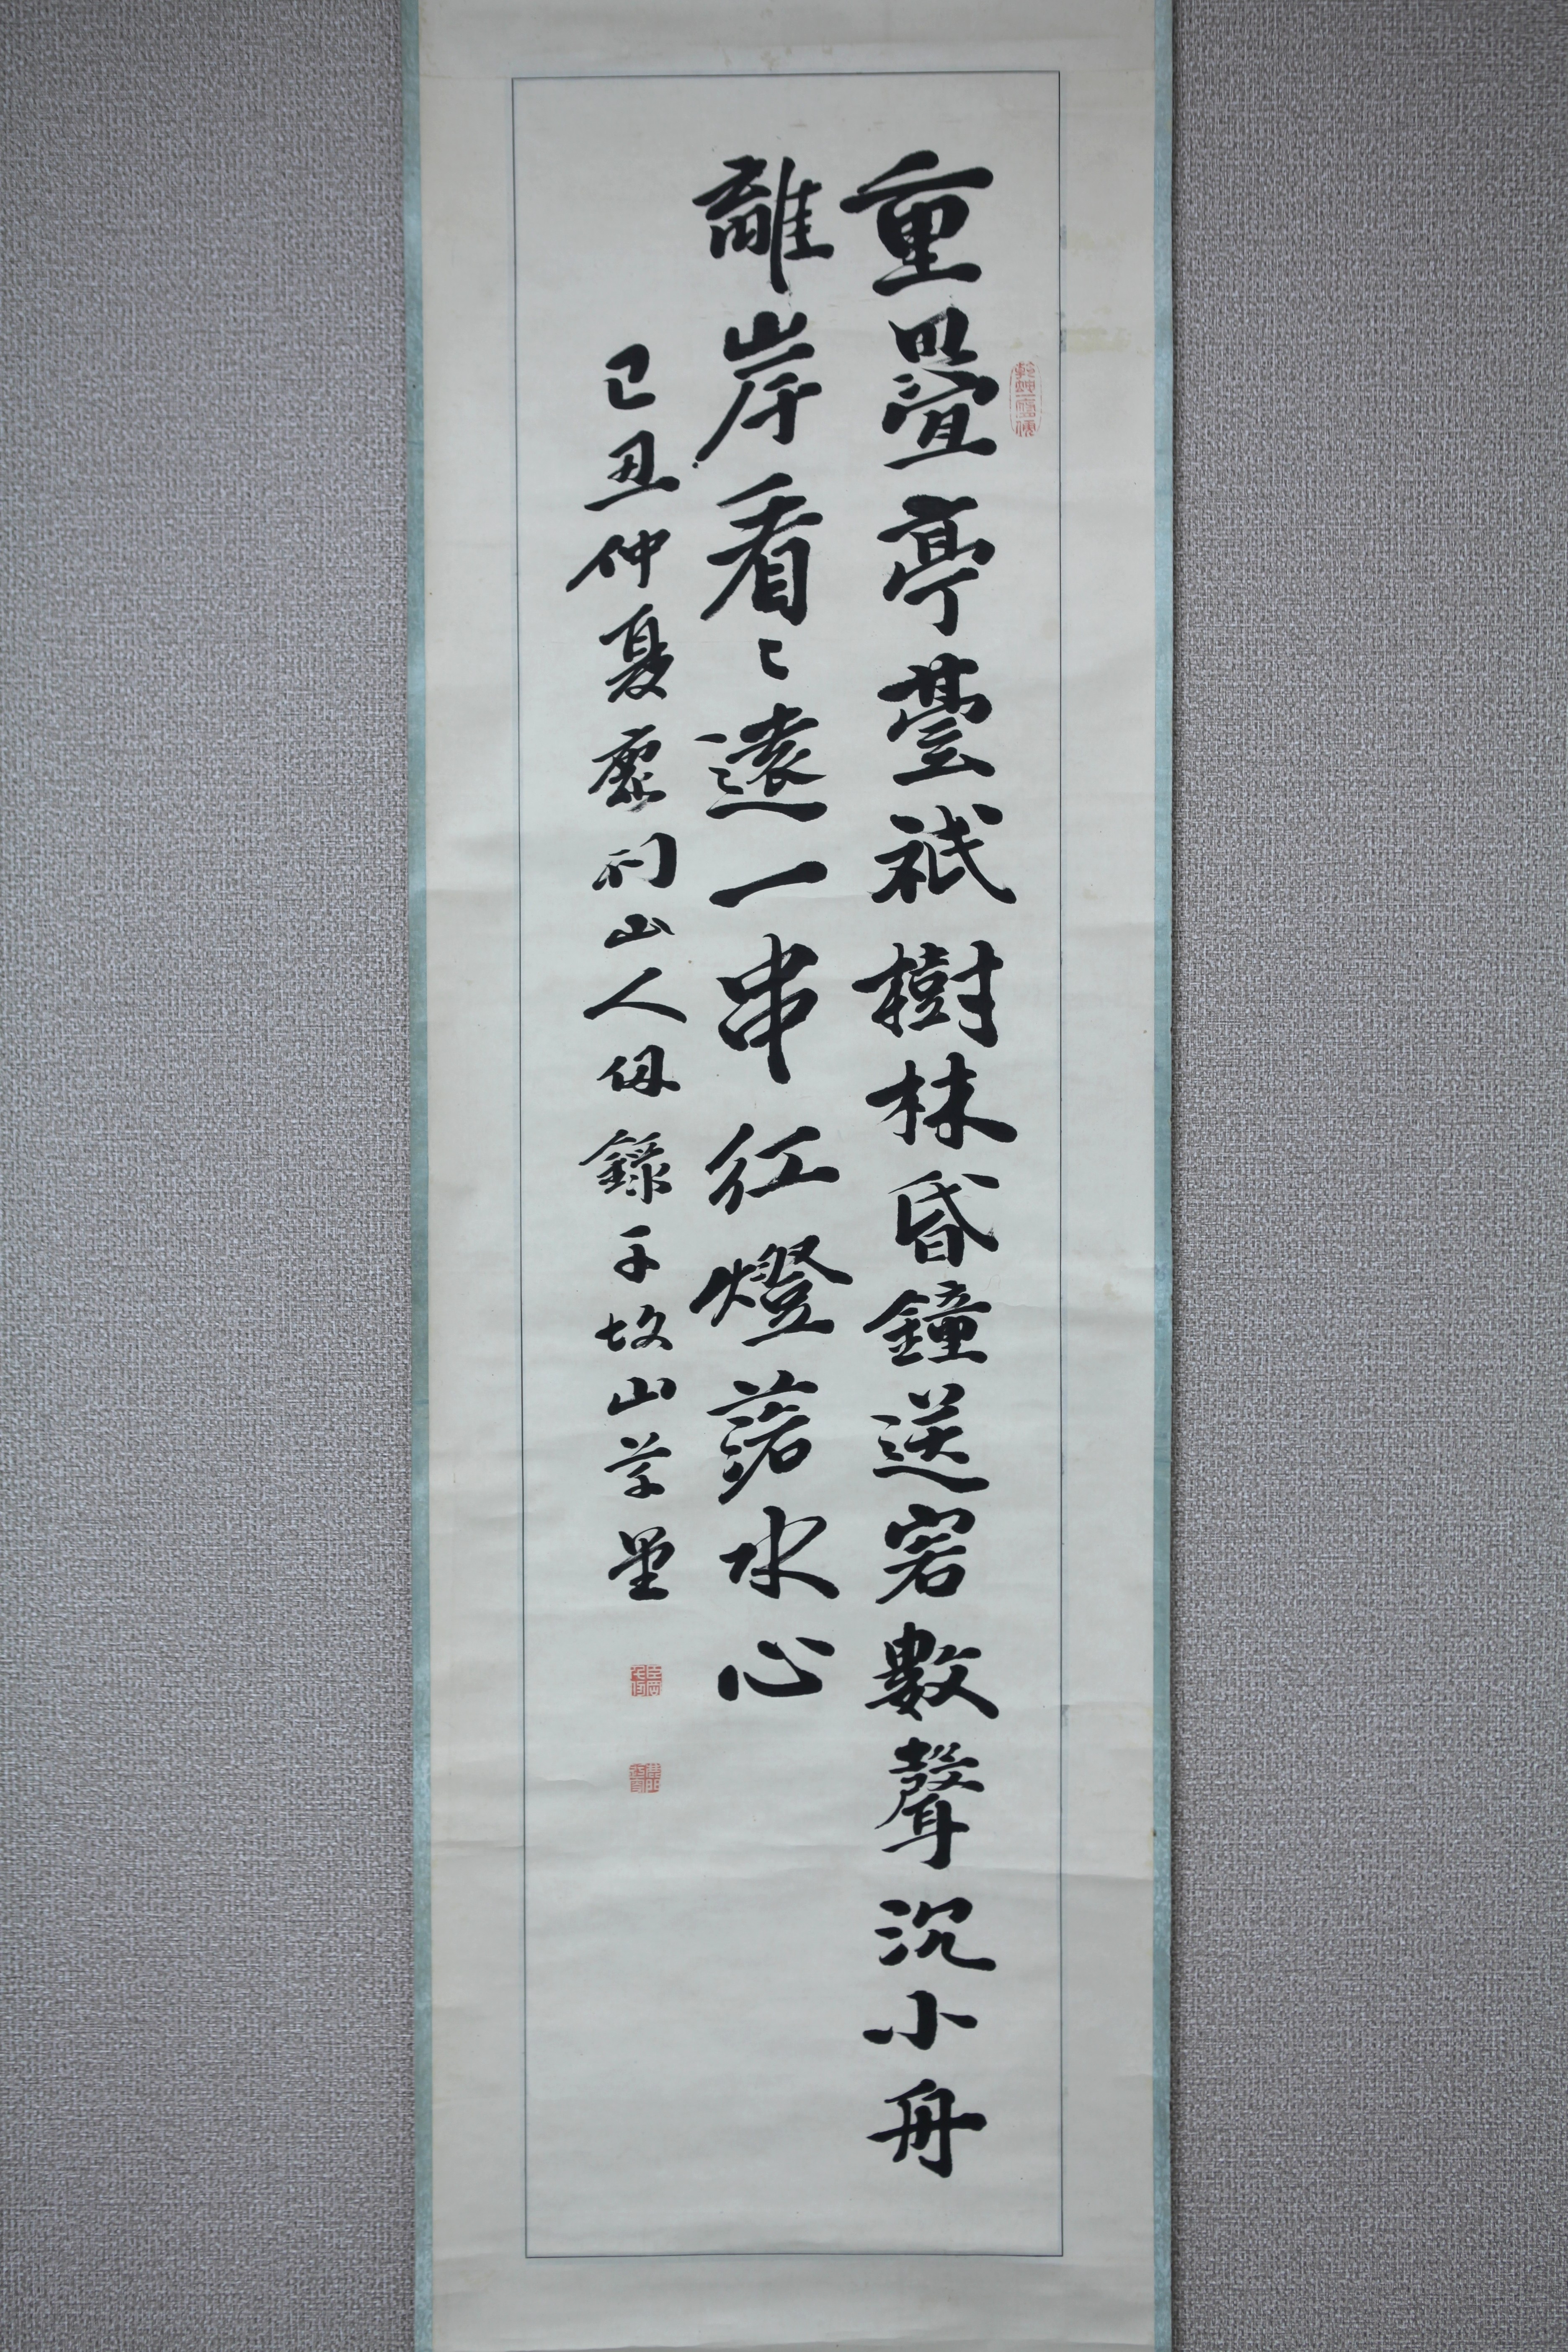 重疊亭臺祇樹林昏鐘送客數聲沉小舟
離岸看〻遠一串紅燈落水心
己丑仲夏鹿門山人伋錄于故山草堂